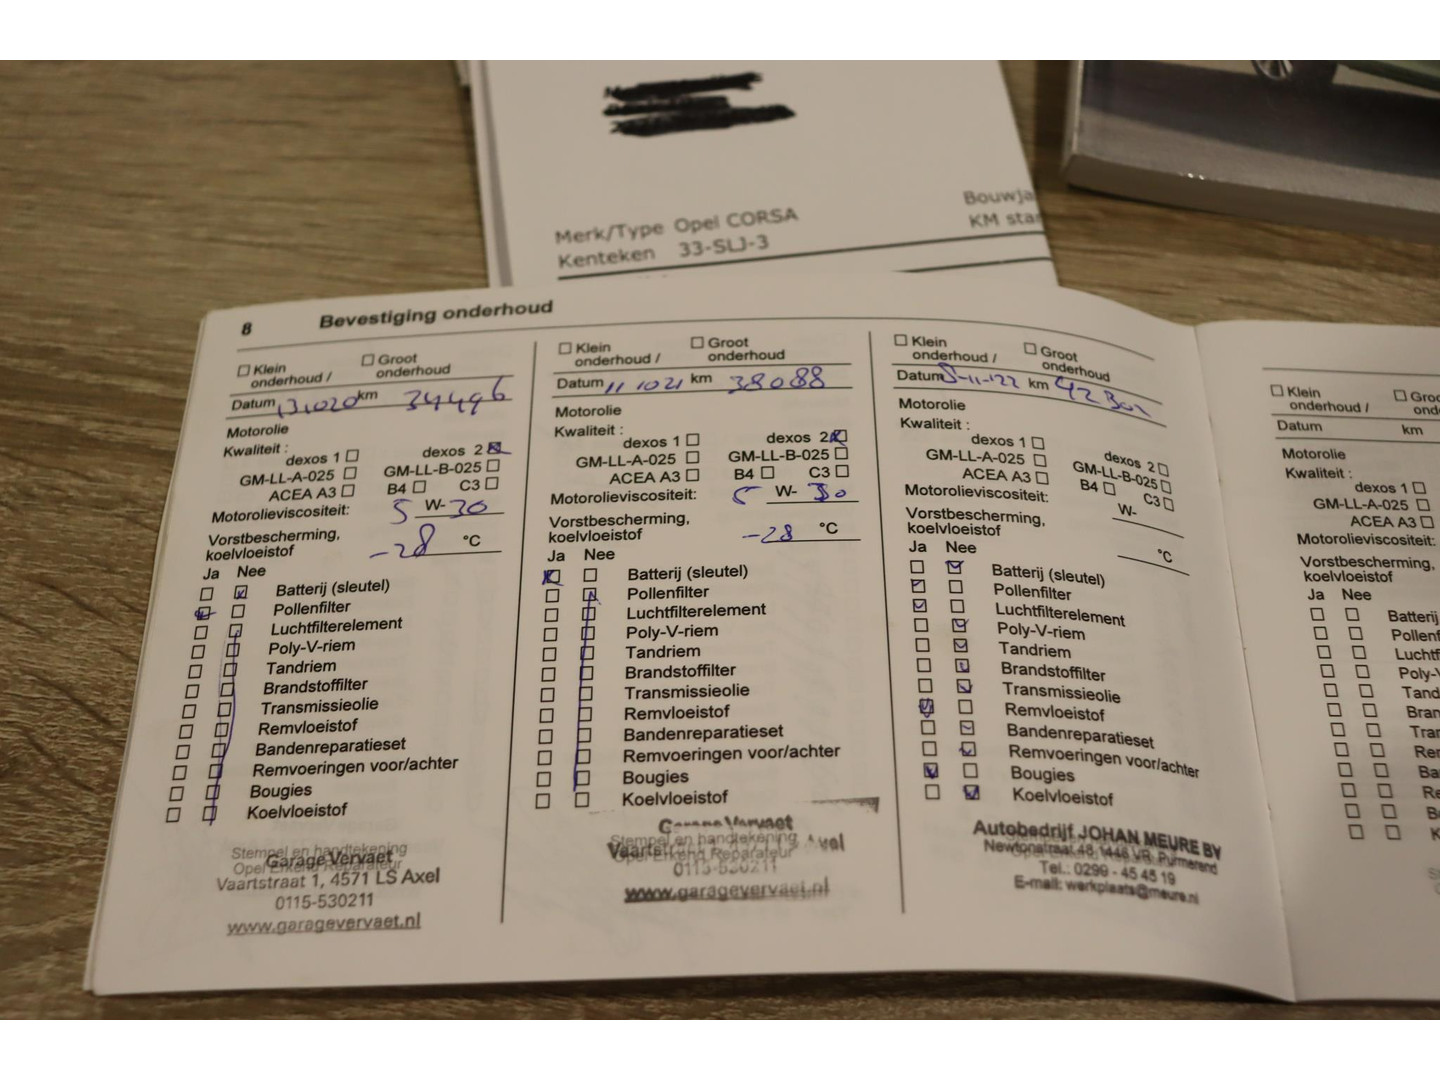 Merk/Type Opel CORSA
Kenteken 33-SLJ-3
Bouwja
KM sta
8 Bevestiging onderhoud
Klein onderhoud / Groot onderhoud
Datum 131020 km 34496
Motorolie
Kwaliteit :
dexos 1 dexos 2
GM-LL-A-025 GM-LL-B-025
ACEA A3 B4 C3
Motorolieviscositeit: 5 W- 30
Vorstbescherming,
koelvloeistof -28 °C
Ja Nee
Batterij (sleutel)
Pollenfilter
Luchtfilterelement
Poly-V-riem
Tandriem
Brandstoffilter
Transmissieolie
Remvloeistof
Bandenreparatieset
Remvoeringen voor/achter
Bougies
Koelvloeistof
Stempel en handtekening
Garage Vervaet
Opel Erkend Reparateur
Vaartstraat 1, 4571 LS Axel
0115-530211
www.garagevervaet.nl
Klein onderhoud / Groot onderhoud
Datum 11 1021 km 38088
Motorolie
Kwaliteit :
dexos 1 dexos 2
GM-LL-A-025 GM-LL-B-025
ACEA A3 B4 C3
Motorolieviscositeit: 5 W- 30
Vorstbescherming,
koelvloeistof -28 °C
Ja Nee
Batterij (sleutel)
Pollenfilter
Luchtfilterelement
Poly-V-riem
Tandriem
Brandstoffilter
Transmissieolie
Remvloeistof
Bandenreparatieset
Remvoeringen voor/achter
Bougies
Koelvloeistof
Garage Vervaet
Stempel en handtekening
Opel Erkend Reparateur
0115-530211
www.garagevervaet.nl
Klein onderhoud / Groot onderhoud
Datum 8-11-'22 km 42301
Motorolie
Kwaliteit :
dexos 1 dexos 2
GM-LL-A-025 GM-LL-B-025
ACEA A3 B4 C3
Motorolieviscositeit: W-
Vorstbescherming,
koelvloeistof °C
Ja Nee
Batterij (sleutel)
Pollenfilter
Luchtfilterelement
Poly-V-riem
Tandriem
Brandstoffilter
Transmissieolie
Remvloeistof
Bandenreparatieset
Remvoeringen voor/achter
Bougies
Koelvloeistof
Autobedrijf JOHAN MEURE BV
Newtonstraat 48 1446 VR Purmerend
Tel.: 0299 - 45 45 19
E-mail: werkplaats@meure.nl
Klein onderhoud / Groo ond
Datum km
Motorolie
Kwaliteit :
dexos 1
GM-LL-A-025
ACEA A3
Motorolieviscositeit:
Vorstbescherming,
koelvloeistof
Ja Nee
Batterij
Pollenf
Luchtf
Poly-V
Tand
Bran
Tran
Ren
Ba
Re
B
K